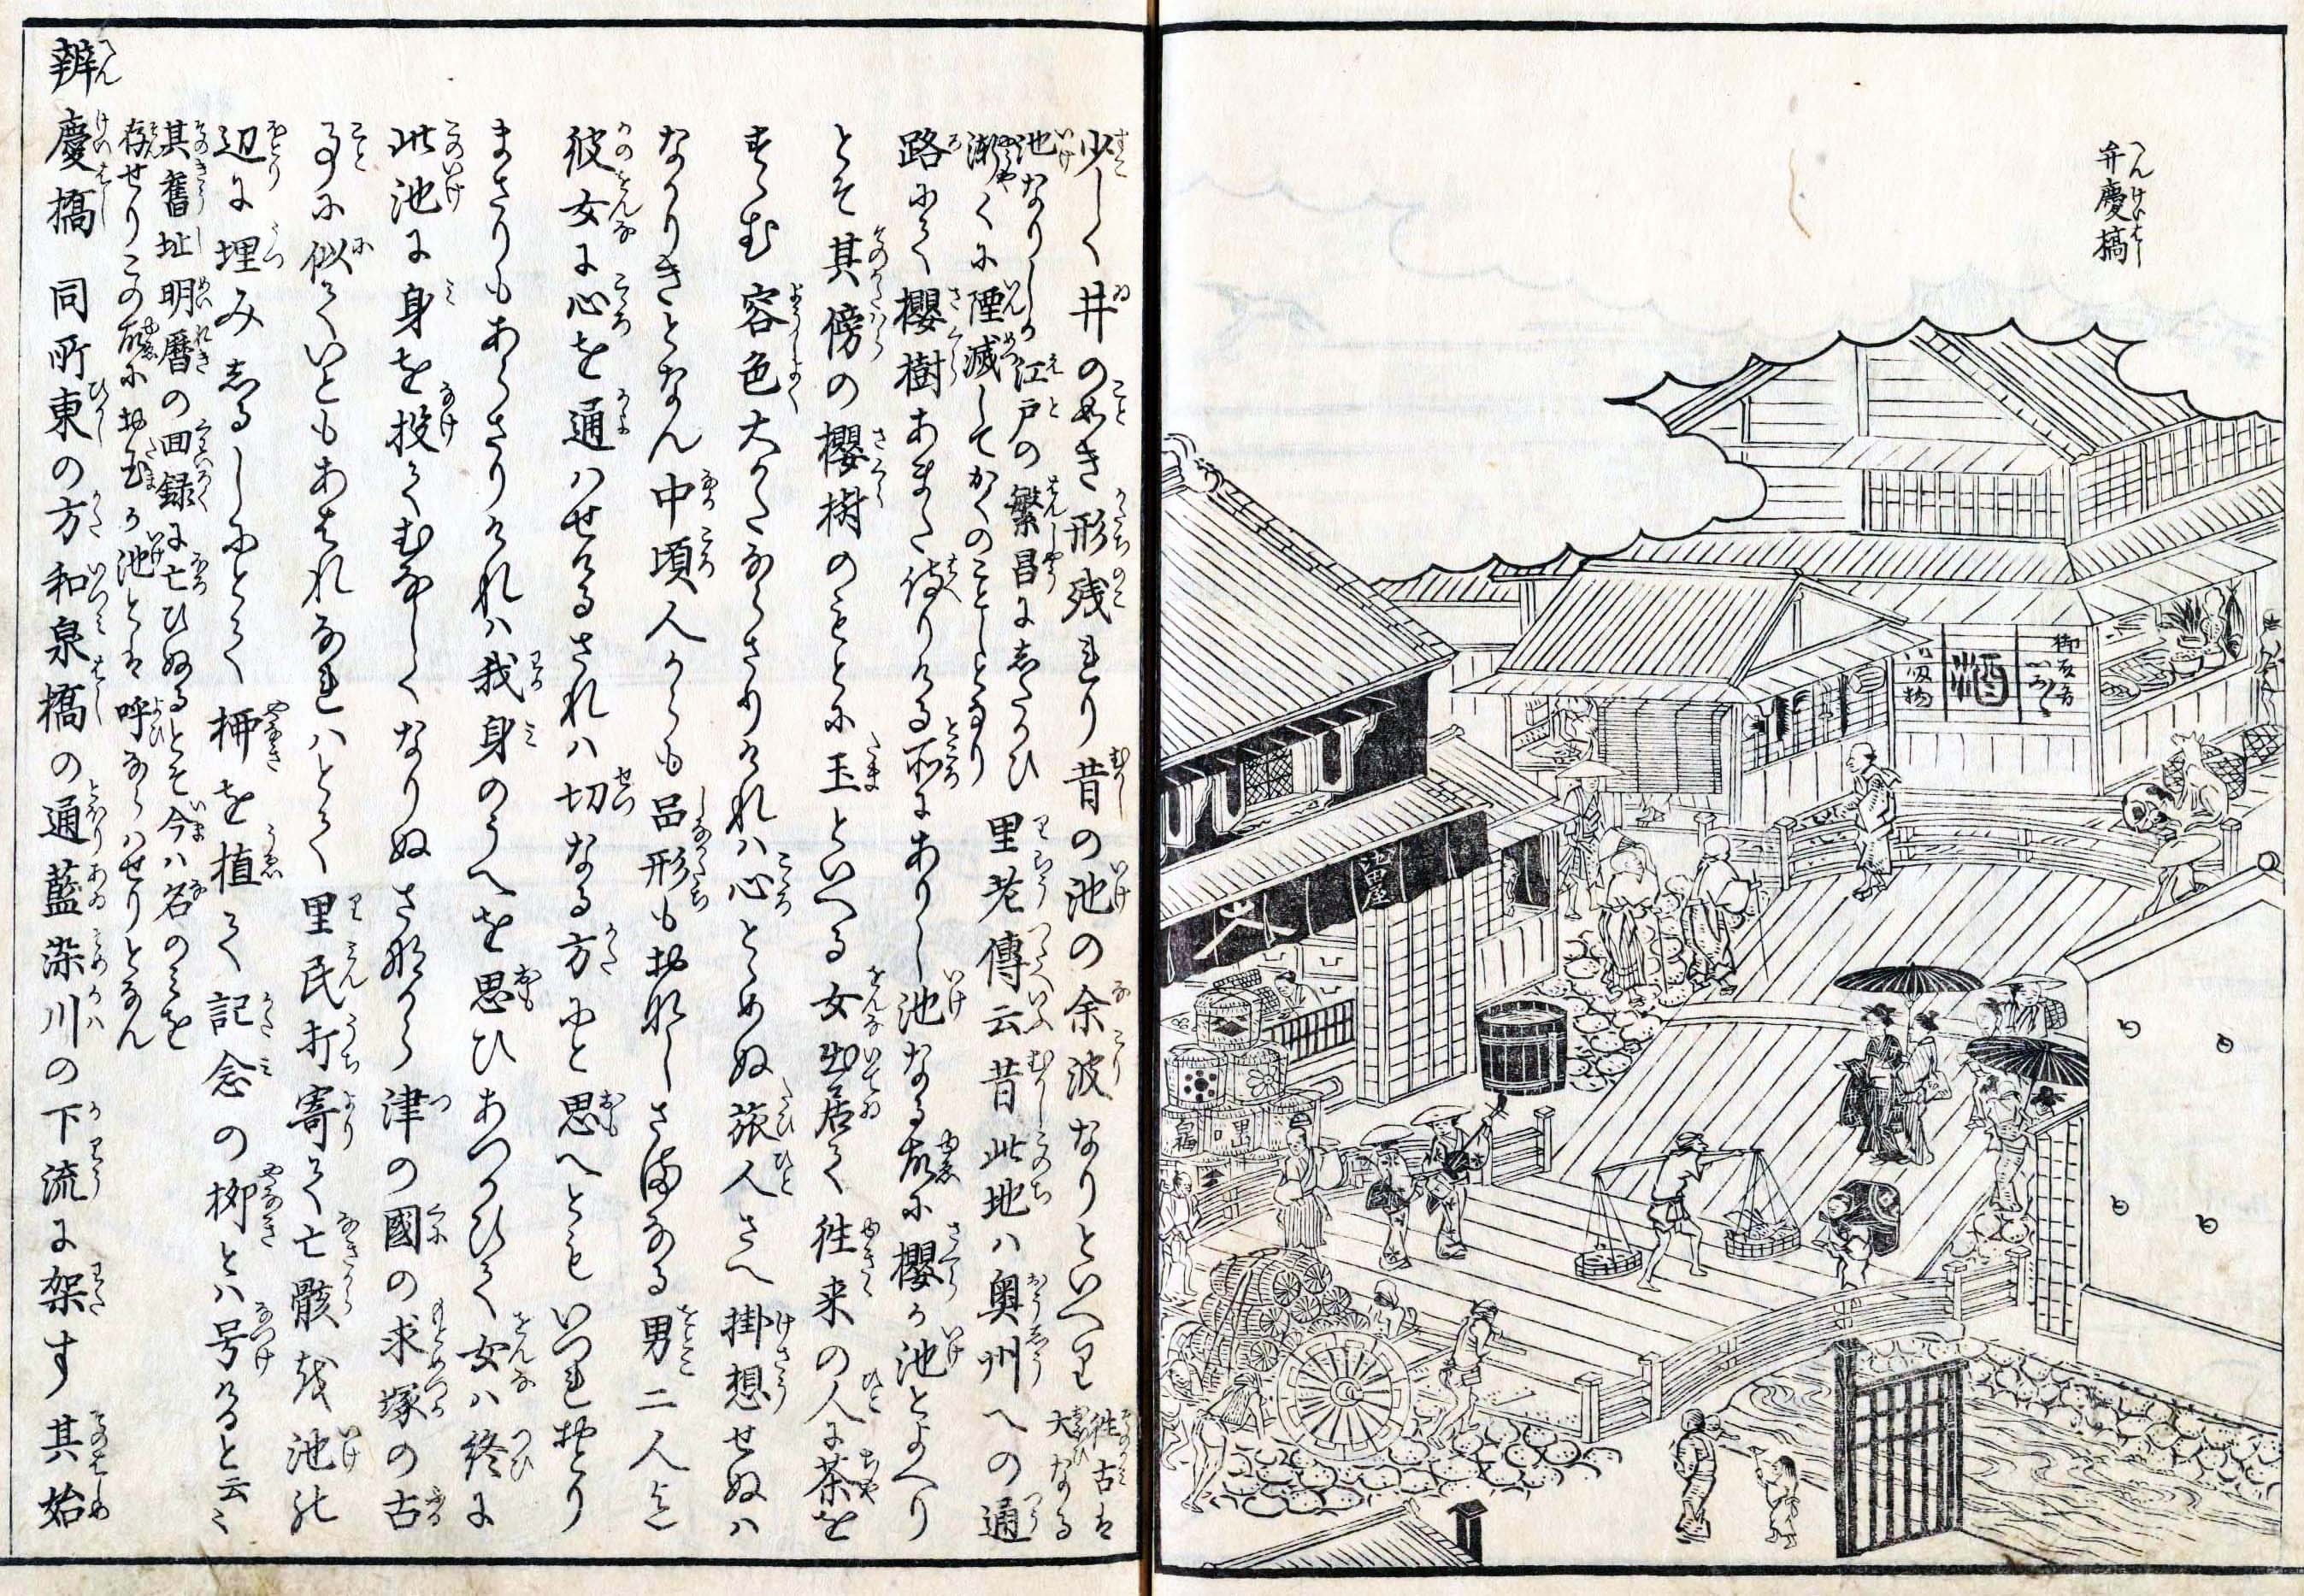 弁慶橋
御吸物
酒
池田屋
白福
少しく井の如き形残れり昔の池の余波なりといへり
往古は
大なる
池なりしか江戸の繁昌にしたかひ
漸くに湮滅してかくのことしとなり
里老傳云昔此地ハ奥州への通
路にて櫻樹あまた侍りける所にありし池なる故に櫻か池とよへり
とそ其傍の櫻樹のもとに玉といへる女出居て往来の人に茶を
すゝむ容色大かたならさりけれは心とゝめぬ旅人さへ掛想せぬハ
なかりきとなん中頃人からも品形もおなしさまなる男二人迄
彼女に心を通ハせけるされハ切なる方にと思へともいつれおとり
まさりもあらさりけれハ我身のうへを思ひあつかひて女ハ終に
此池に身を投てむなしくなりぬさなから津の國の求塚の古
ことに似ていともあはれなれハとて里民打寄て亡骸を池の
辺に埋みしるしにとて柳を植て記念の柳とハ号けると云々
其舊址明暦の回録に亡ひぬるとそ今ハ名のミを
存せりこの故に於玉か池とは呼ならハせりとなん
辨慶橋 同所東の方和泉橋の通藍染川の下流に架す其始